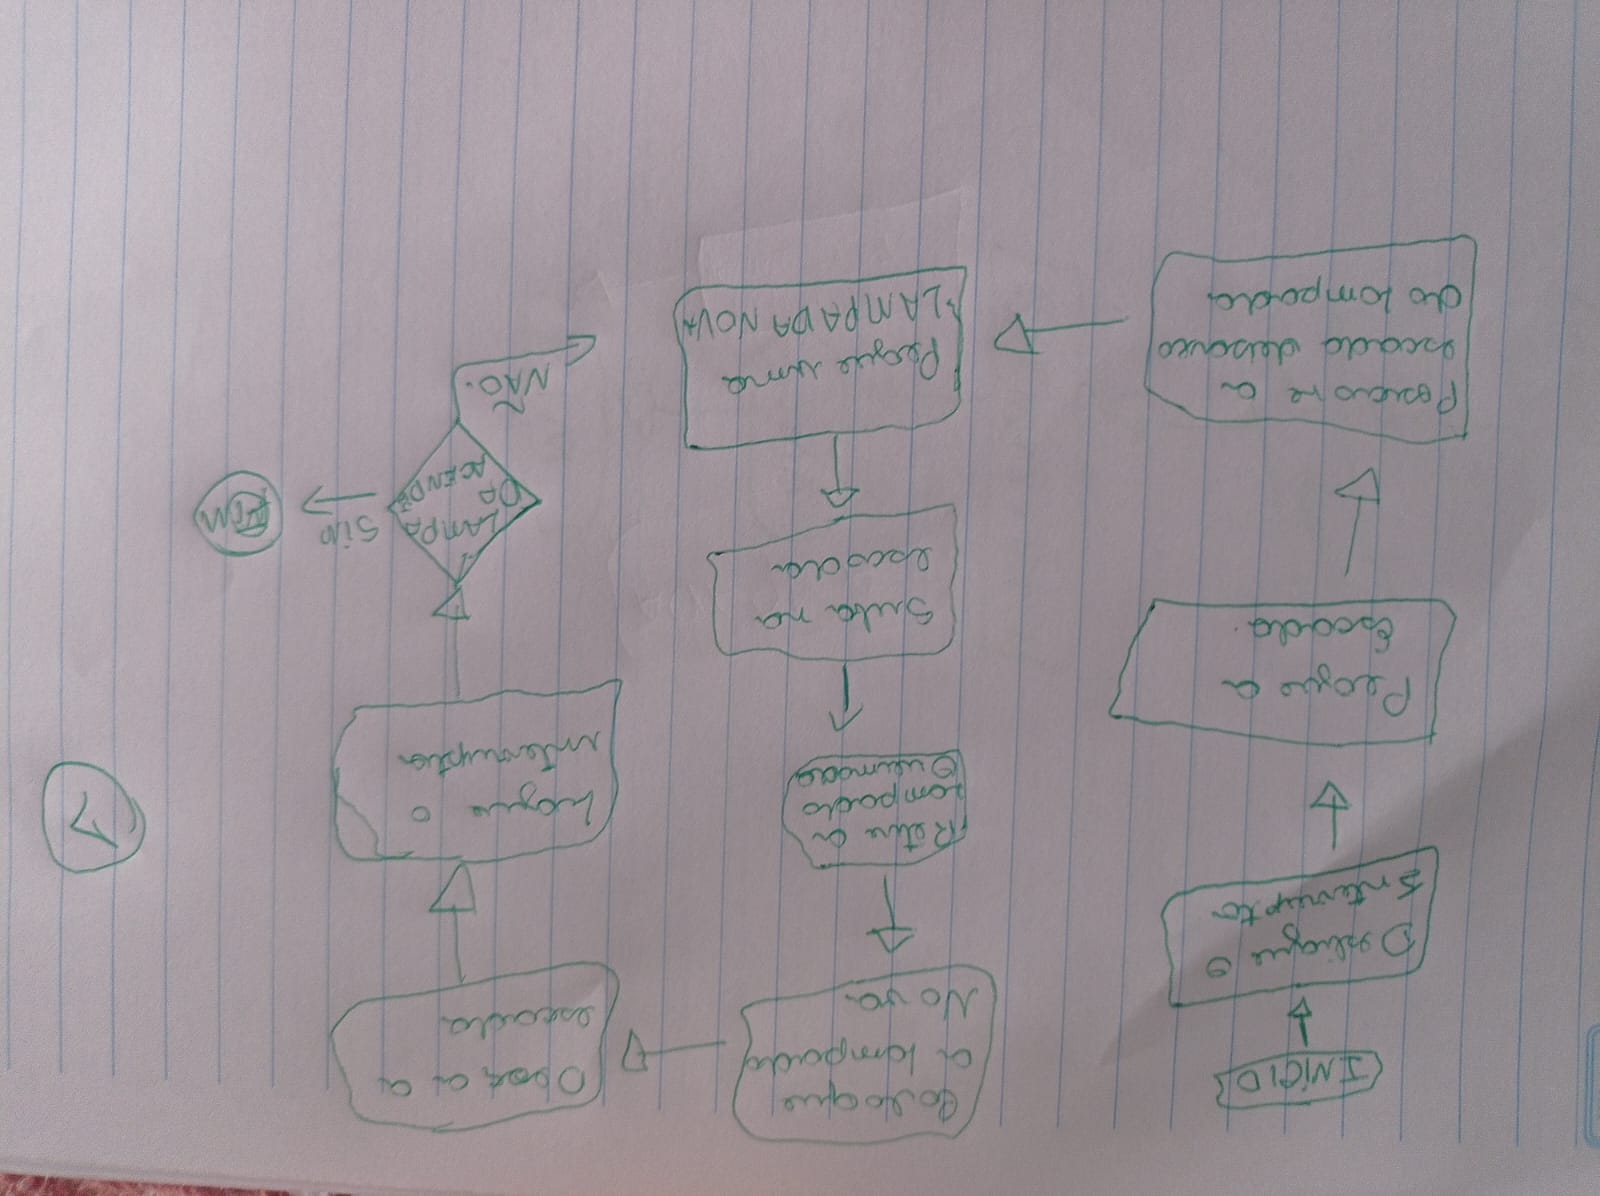 INICIO
Desligue o
Interruptor
Pegue a
Escada.
Posicione a
escada debaixo
da lampada
Pegue uma
LAMPADA NOVA
Suba na
escada
Retire a
Lampada
Queimada
Coloque
a lampada
Nova
escada
Ligue o
interruptor
A
LAMPA
DA
ACENDE
SIM
FIM
NÃO.